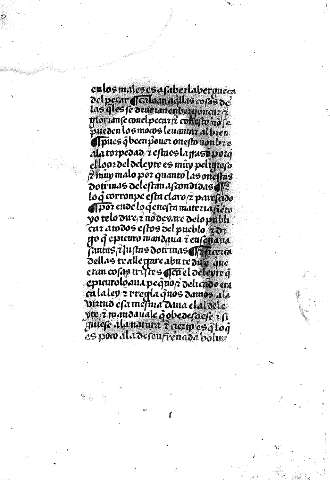 en los males es a saber la verguença
del pecar ¶ Ca loan aq̃llas cosas de
las q̃les se
glorianse con el pecar ⁊ con esto no se
pueden los moços leuantar al bien
¶ pues q̃ bien poner onesto nonbre
ala torpedad ⁊ esta es la q̃
ello del deleyte es muy peligroso
⁊ muy malo por quanto las onestas
dotrinas del estan ascondidas ¶ 
lo q̃ corronpe esta claro ⁊ paresçido
¶ por ende lo q̃ en esta materia siẽto
yo te lo dire ⁊ no dexare de lo publi
car a todos estos del pueblo ⁊ di
go q̃ epicuro mandaua ⁊ enseñaua
santas ⁊ justas dotrinas ¶
dellas te allegares a bn te digo que
eran cosas tristes ¶ Ca el deleyte q̃
epicuro loaua pequeño ⁊ delicado era
ca la ley ⁊ rregla q̃ nos damos ala
virtud esa mesma daua el al deley
te ⁊ mandauale q̃ obedesçiese ⁊ si
guiese ala natura ⁊ çierto es q̃ lo q̃
es poco ala desenfrenada